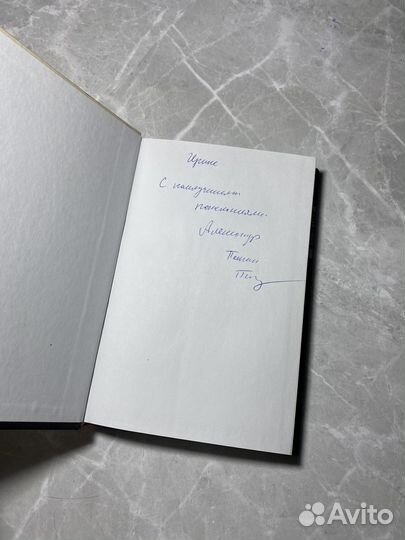 Ирине
С наилучшими
пожеланиями.
Александр
Avito